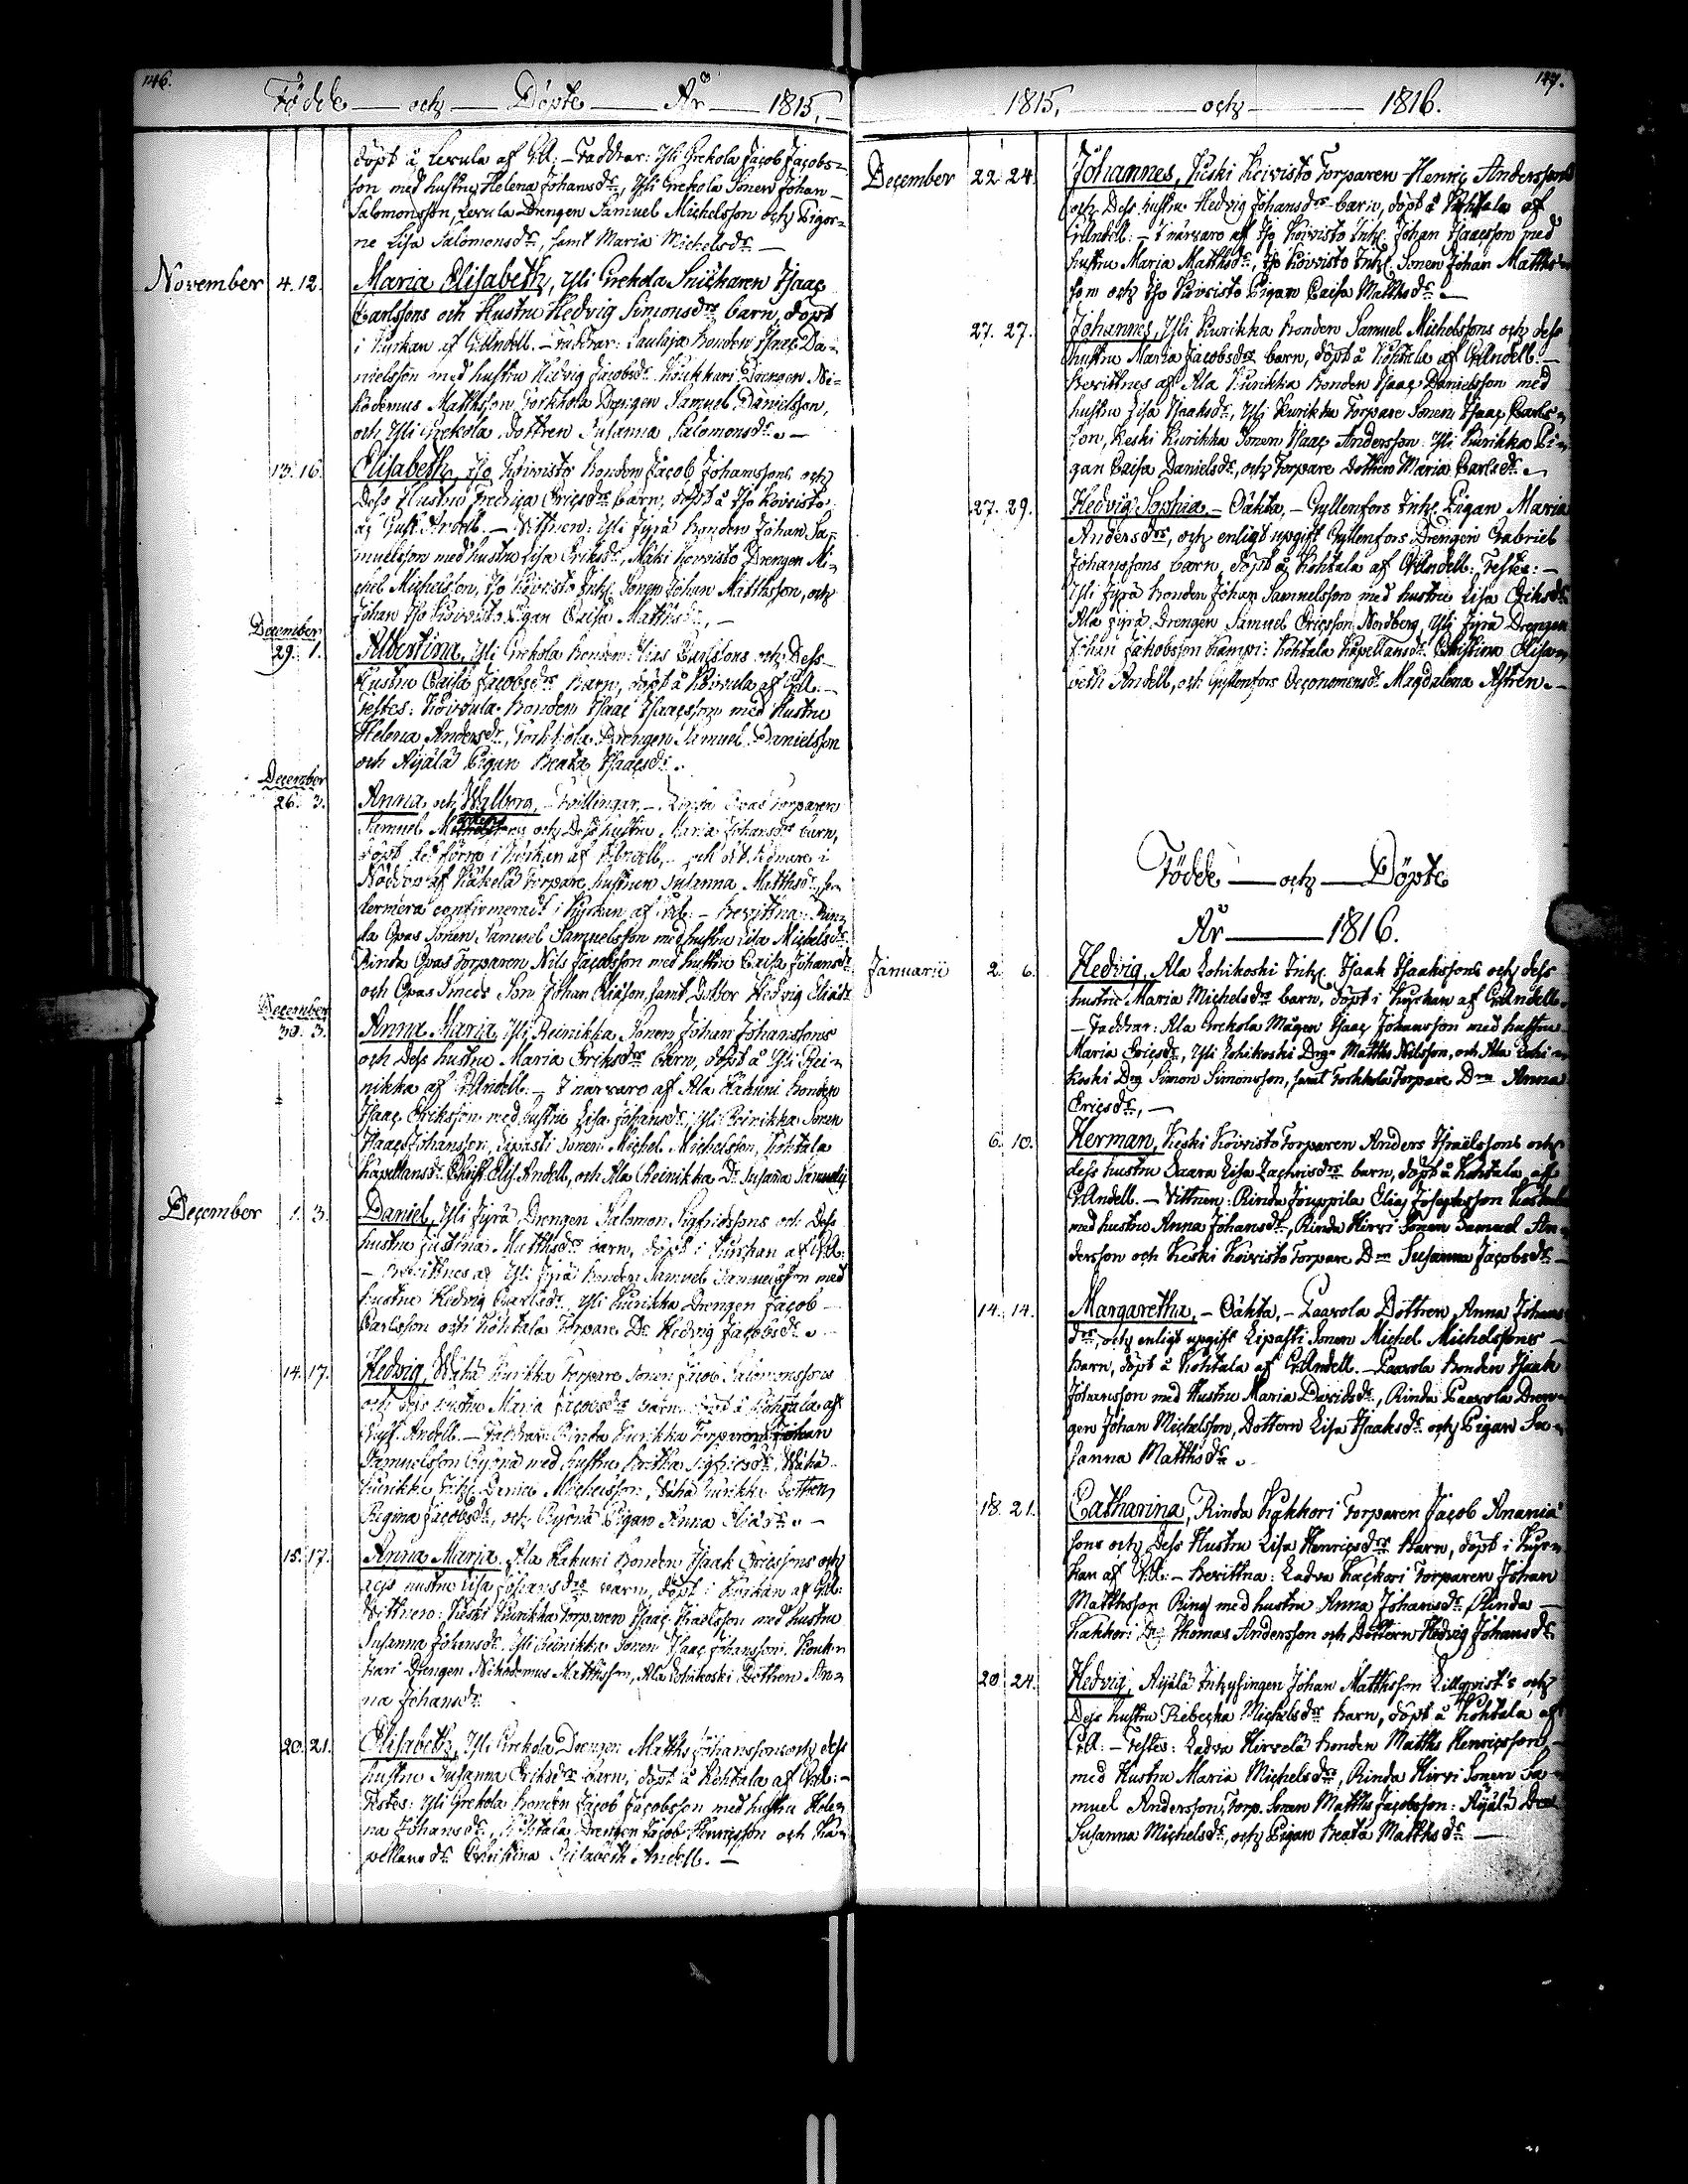 146.
Födde — och — Döpte — År — 1815,
döpt å Lerula af GA: – Faddrar: Yli Grekola Jacob Jacobs-
son med hustru Helena Johansdr, Yli Grekola Sonen Johan
Salomonsson, Lerula Drengen Samuel Michelsson och Pigor-
ne Lisa Salomonsdr, samt Maria Michelsdr –
November 4. 12. Maria Elisabeth, Yli Grekola Snickaren Isaac
Carlssons och Hustru Hedvig Simonsdrs barn, döpt
i Kyrkan af GAndell. – Faddrar: Laulaja Bonden Isaac Da-
nielsson med hustru Hedvig Jacobsdr Koukkari Drengen Ni-
kodemus Matthsson, Torkkola Drengen Samuel Danielsson,
och Yli Grekola dottren Susanna Salomonsdr. –
13. 16. Elisabeth, Iso Koivisto Bonden Jacob Johanssons och
Dess Hustru Fredrica Ericsdrs barn, döpt å Iso Koivisto
af Gust. Andell. – Vittnen: Yli Jyrä Bonden Johan Sa-
muelsson med hustru Lisa Eriksdr, Mäki Koivisto Drengen Mi-
chel Michelsson, Iso Koivisto Inh. Sonen Johan Matthsson, och
Johan Iso Koivisto Pigan Caisa Matthsdr, –
December
29. 1. Albertina, Yli Grekola Bonden Elias Carlssons och Dess
Hustru Caisa Jacobsdrs Barn, döpt å Koivula af GA. –
Testes: Koivula Bonden Isaac Isaacsson med Hustru
Helena Andersdr, Torkkola Drengen Samuel Danielsson
och Äijälä Pigan Beata Isaacsdr.
December
26. 3. Anna och Walborg, – Tvillingar, – Rinda Opas Torparen
Samuel och Dess hustru Maria Johansdrs barn,
döpt det förra i Kyrkan af GAndell, – och det sednare i
Nöddop af Käkelä Torpare hustrun Susanna Matthsdr, se-
dermera confirmeradt i Kyrkan af GA: – Bevittna: Rin-
da Opas Sonen Samuel Samuelsson med hustru Lisa Michelsdr
Rinda Opas Torparen Nils Jacobsson med hustru Caisa Johansdr
och Opas Smeds Son Johan Eliasson, samt Dottor Hedvig Eliasdr
December
30. 3. Anna Maria, Yli Reinikka Sonen Johan Johanssons
och dess hustru Maria Eriksdrs barn, döpt å Yli Rei-
nikka af GAndell. – I närvaro af Ala Kakuri Bonden
Isaac Eriksson med hustru Lisa Johansdr, Yli Reinikka Sonen
Isaac Johansson, Lipasti Sonen Michel Michelsson, Kohtala
Kapellansdr Christ. Elis. Andell, och Ala Reinikka Dr Susana Samuelsdr
December 1. 3. Daniel, Yli Jyrä Drengen Salomon Sigfridssons och Dess
hustru Justina Matthsdrs barn, döpt i Kyrkan af GA:
– Bevittnes af Yli Jyrä Bonden Samuel Samuelsson med
hustru Hedvig Carlsdr. Yli Kurikka Drengen Jacob
Carlsson och Kohtala Torpare Dr Hedvig Jacobsdr.
14. 17. Hedvig, Wähä Kurikka Torpare Sonen Jacob Salomonssons
och dess hustru Maria Jacobsdrs barn, döpt å Kohtala af
Gust. Andell. – Faddrar: Rinda Kurikka Torparen Johan
Samuelsson med hustru Britha Sigfridsdr, Wähä
Kurikka Inh. Daniel Michelsson, Wähä Kurikka Dottren
Regina Jacobsdr, och Pigan Anna Eliasdr. –
15. 17. Anna Maria. Ala Kakuri Bonden Isaak Ericssons och
dess hustru Lisa Johansdrs barn, döpt i Kyrkan af GA:
Vittnen: Keski Kurikka Torparen Isaac Israelsson med hustru
Susanna Johansdr, Yli Reinikka Sonen Isaac Johansson. Kouk-
kari Drengen Nikodemus Matthsson, Ala Lohikoski Dottren An-
na Johansdr
20. 21. Elisabeth, Yli Grekola Drengen Matths Johanssons och dess
hustru Susanna Eriksdrs barn, döpt å Kohtala af GA: –
Testes: Yli Grekola Bonden Jacob Jacobsson med hustru Hele-
na Johansdr, Kohtala Drengen Jacob Henricsson och Ka-
pellans dr Christina Elisabeth Andell. –
147.
1815, — och — 1816.
December 22 24. Johannes, Keski Koivisto Torparen Henric Anderssons
och Dess hustru Hedvig Johansdrs barn, döpt å Kohtala af
GAndell: – I närvaro af Iso Koivisto Inh. Johan Isaacsson med
hustru Maria Matthsdr, Iso Koivisto Inh. Sonen Johan Matths-
son och Iso Koivisto Pigan Caisa Matthsdr. –
27. 27. Johannes, Yli Kurikka Bonden Samuel Michelssons och dess
hustru Maria Jacobsdrs barn, döpt å Kohtala af GAndell. –
Bevittnes af Ala Kurikka Bonden Isaac Danielsson med
hustru Lisa Isaksdr, Yli Kurikka Torpare Sonen Isaac Carls-
son, Keski Kurikka Sonen Isaac Andersson: Yli Kurikka Pi-
gan Caisa Danielsdr, och Torpare dottren Maria Carlsdr.
27. 29. Hedvig Sophia, – Oäkta, – Gyllenfors Inh. Pigan Maria
Andersdrs, och enligt upgift Gyllenfors Drengen Gabriel
Johanssons barn, döpt å Kohtala af GAndell: Testes: –
Yli Jyrä Bonden Johan Samuelsson med hustru Lisa Eriksdr
Ala Jyrä Drengen Samuel Ericsson Nordberg, Yli Jyrä Drengen
Johan Jakobsson Kampi: Kohtala Kapellansdr. Christina Elisa-
beth Andell, och Gyllenfors Oeconomensdr Magdalena Astrén. –
Födde — och — Döpte
År — 1816.
Januarii 2. 6. Hedvig, Ala Lohikoski Inh. Isaak Isaakssons och dess
hustru Maria Michelsdrs barn, döpt i Kyrkan af GAndell.
– Faddrar: Ala Grekola Mågen Isaac Johansson med hustru
Maria Ericsdr, Yli Lohikoski Drg. Matths Nilsson, och Ala Lohi-
koski Drg Simon Simonsson, samt Torkkola Torpare Drn Anna
Ericsdr, –
6. 10. Herman, Keski Koivisto Torparen Anders Israelssons och
dess hustru Saara Lisa Zachrisdrs barn, döpt å Kohtala af
GAndell. – Vittnen: Rinda Jouppila Elias Josephsson
med hustru Anna Johansdr, Rinda Hirvi Sonen Samuel An-
dersson och Keski Koivisto Torpare Drn Susanna Jacobsdr –
14. 14. Margaretha, – Oäkta, – Paavola Dottren Anna Johans
drs, och enligt upgift Lipasti Sonen Michel Michelssons
barn, döpt å Kohtala af GAndell. – Paavola Bonden Isaak
Johansson med Hustru Maria Davidsdr, Rinda Paavola Dren-
gen Johan Michelsson, Dottern Lisa Isaaksdr och Pigan Su-
sanna Matthsdr.
18. 21. Catharina, Rinda Kakkori Torparen Jacob Anania
sons och Dess Hustru Lisa Henricsdrs Barn, döpt i Kyr-
kan af GA: – Bevittna: Ladva Kackori Torparen Johan
Matthsson Ring med hustru Anna Johansdr Rinda
Kakkori Dr. Thomas Andersson och Dottern Hedvig Johansdr
20 24. Hedvig, Äijälä Inhysingen Johan Matthsson Lillqvist's och
Dess hustru Rebecka Michelsdrs Barn, döpt å Kohtala af
GA. – Testes: Ladva Hirvelä Bonden Matths Henricsson
med Hustru Maria Michelsdr, Rinda Hirvi Sonen Sa-
muel Andersson, Torp. Sonen Matths Jacobsson: Äijälä
Susanna Michelsdr, och Pigan Beata Matthsdr –